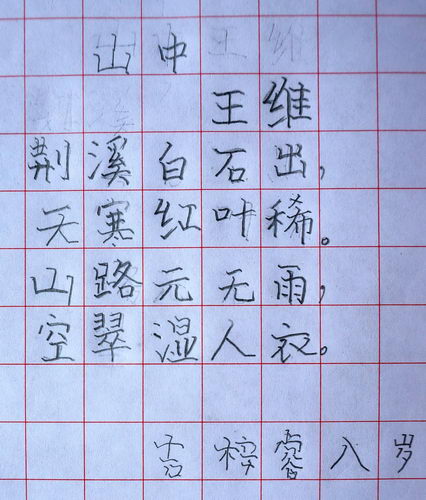 山中
王维
荆溪白石出，
天寒红叶稀。
山路元无雨，
空翠湿人衣。
八岁